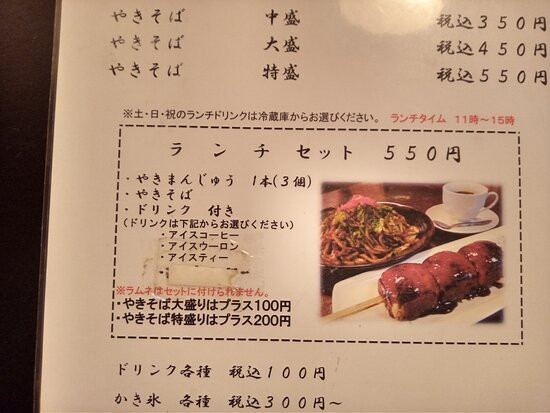 やきそば 中盛 税込350円
やきそば 大盛 税込450円
やきそば 特盛 税込550円
※土・日・祝のランチドリンクは冷蔵庫からお選びください。 ランチタイム 11時~15時
ランチセット 550円
・やきまんじゅう 1本(3個)
・やきそば
・ドリンク 付き
(ドリンクは下記からお選びください)
・アイスコーヒー
・アイスウーロン
・アイスティー
※ラムネはセットに付けられません。
・やきそば大盛りはプラス100円
・やきそば特盛りはプラス200円
ドリンク各種 税込100円
かき氷 各種 税込300円~